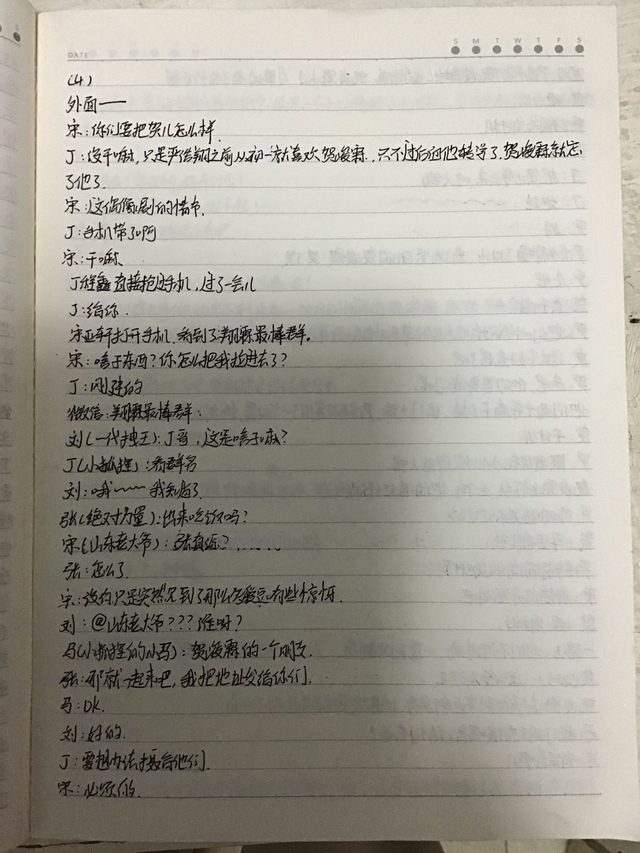 DATE
S M T W T F S
(4)
外面——
宋:你们要把贺儿怎么样
丁:没干嘛,只是严浩翔之前从初一就喜欢贺峻霖,只不过后面他转学了,贺峻霖就忘
了他了.
宋:这偶像剧的情节.
丁:手机带了啊
宋:干嘛
丁程鑫直接抢过手机,过了一会儿
丁:给你.
宋亚轩打开手机,看到了翔霖最棒群。
宋:啥子东西?你怎么把我拉进去了?
丁:刚建的
微信:翔霖最棒群:
刘(一代拽王):丁哥,这是啥子嘛?
丁(小狐狸):看群名
刘:哦~~~我知道了.
张(绝对力量):出来吃饭吗?
宋(山东老大爷):张真源?......
张:怎么了.
宋:没有只是突然见到了那么多爱豆有些惊讶.
刘:@山东老大爷???谁呀?
马(小狐狸的小马):贺峻霖的一个朋友.
张:那就一起来吧,我把地址发给你们.
马:OK.
刘:好的.
丁:要想办法撮合他们.
宋:必须的.